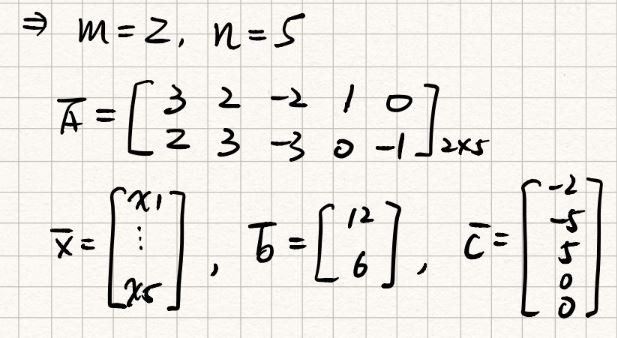 ⇒ m=2, n=5
A̅ = [ 3 2 -2 1 0
2 3 -3 0 -1 ] 2×5
x̅ = [ x1 ⋮ x5 ] , b̅ = [ 12 6 ] , c̅ = [ -2 -5 5 0 0 ]